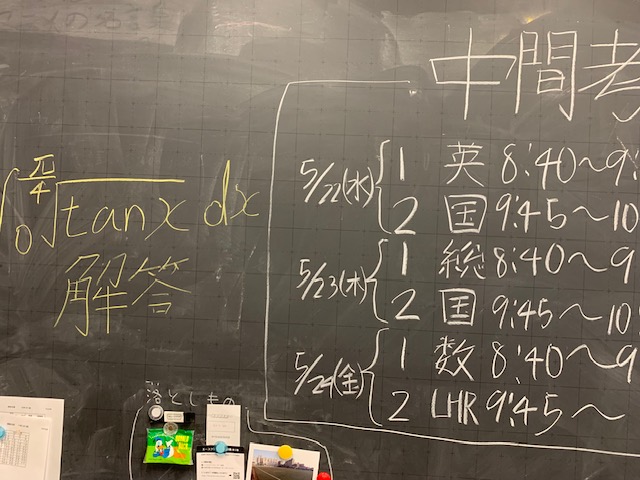 ∫₀^{π/4} √tanx dx
解答
中間考
5/22(水) 1 英 8:40〜9:
2 国 9:45〜10
5/23(木) 1 総 8:40〜9
2 国 9:45〜10
5/24(金) 1 数 8:40〜9
2 LHR 9:45〜
落としもの